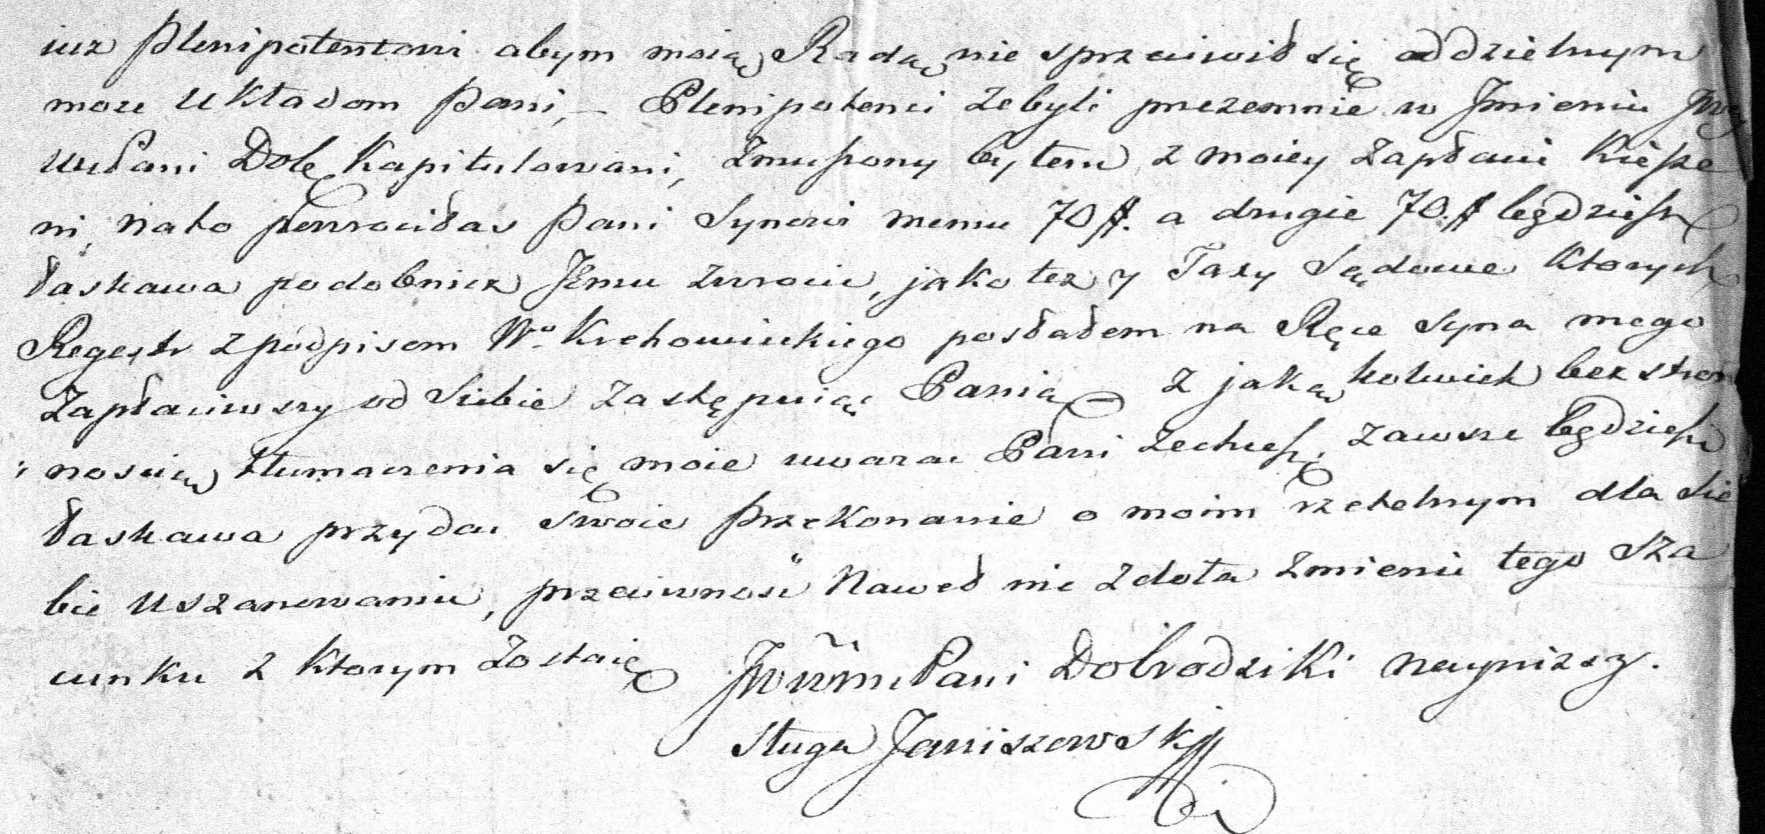 iuz Plenipotentowi abym moią Radą nie sprzeiwił się oddzielnym
moze Układom Pani, – Plenipotenci zebyli przezemnie w Jmieniu
Dole Kapitulowani, Zmuszony bytem z moiey Zapłacić Kiesze
ni, nato powrociłas Pani Synowi memu 70 ff. a drugie 70. ff będziesz
łaskawa podobniez Jemu zwrocic, jako tez y Taxy Sądowe Ktorych
Regestr z podpisem Wo. Krchowieckiego posłałem na Ręce Syna mego
Zapłaciwszy od Siebie Zastępuiąc Panią – z jaką kolwiek bezstron
nością tłumaczenia się moie uwazac Pani zechcesz, zawsze będziesz
łaskawa przydac swoie Przekonanie o moim rzetelnym dla Sie
bie Uszanowaniu, przeciwnosc Naweł nie zdoła zmienic tego Sza
cunku z Ktorym Zostaię Pani Dobrodziki nayniszy.
sługa Janiszewski